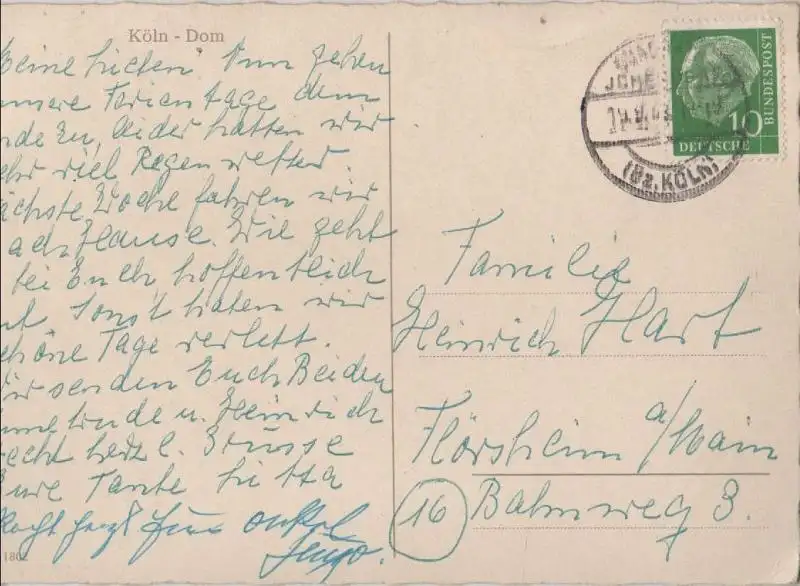 Köln - Dom
eine Lieben Nun gehen
unsere Ferientage dem
nde zu, leider hatten wir
ehr viel Regen wetter.
ächste Woche fahren wir
ach Hause. Wie geht
bei Euch, hoffentlich
ut Sonst haben wir
chöne Tage verlebt.
ir senden Euch Beiden
u. Heinrich
echt herzl. Grüsse
ure Tante
Onkel
180
DEUTSCHE
BUNDESPOST
10
(Bz. KÖLN)
Familie
Heinrich Hart
Flörsheim a/Main
16 Bahnweg 3.